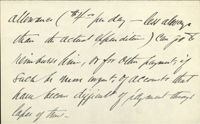 allowance ( $4/00 per day – less always
than the actual expenditure) Can go to
reimburse him, or for other payments, if
such be more urgent, of accounts that
have become difficult of payment through
lapse of time.